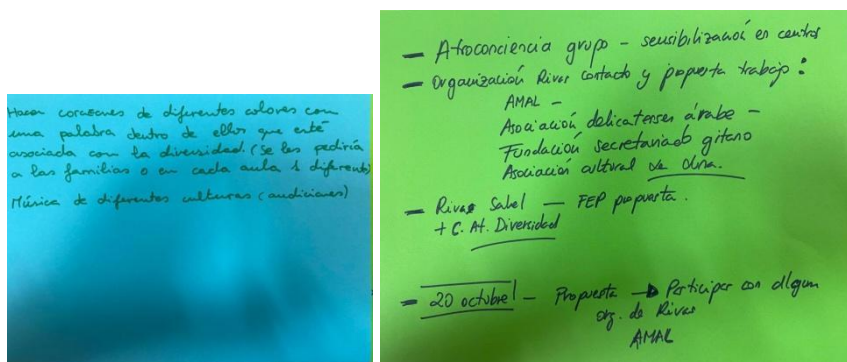 Hacer corazones de diferentes colores con
una palabra dentro de ellos que esté
asociada con la diversidad. (se les pediría
a las familias o en cada aula 1 diferente)
Música de diferentes culturas (audiciones)
— Afroconciencia grupo – sensibilización en centros
— Organización Rivas contacto y propuesta trabajo:
AMAL –
Asociación delicatessen árabe –
Fundación secretariado gitano
Asociación cultural de China.
— Rivas Sahel — FEP propuesta.
+ C. At. Diversidad
— 20 octubre – Propuesta → Participar con algun
org. de Rivas
AMAL